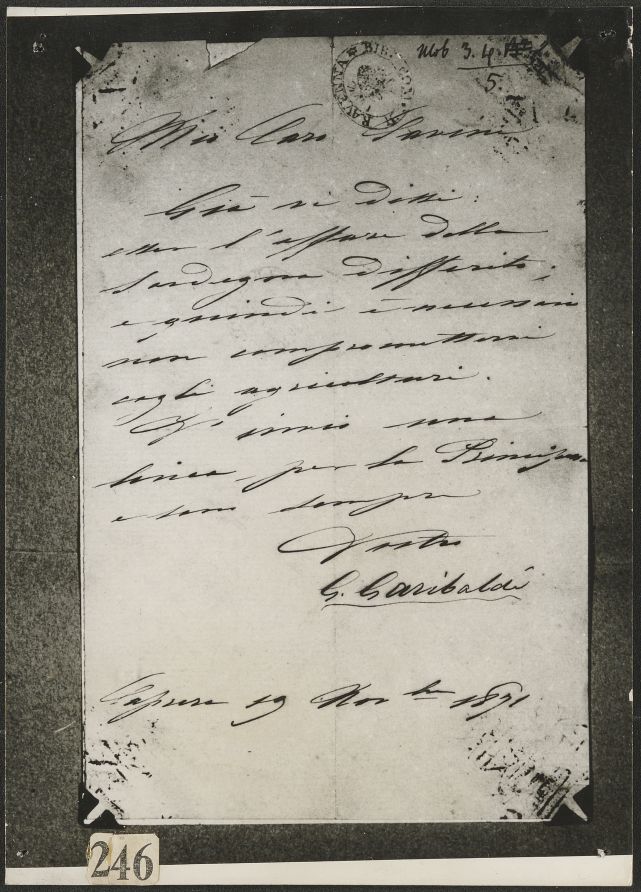 Mob 3. 4.
5.
RAVENNA BIB. COM.
Mio Caro Savini
Già vi dissi:
esser l'affare della
Sardegna differito;
e quindi è necessario
non compromettersi
cogli agricoltori.
V'invio una
linea per la Principessa
e sono sempre
Vostro
G. Garibaldi
Caprera 19 Nov.bre 1871
246